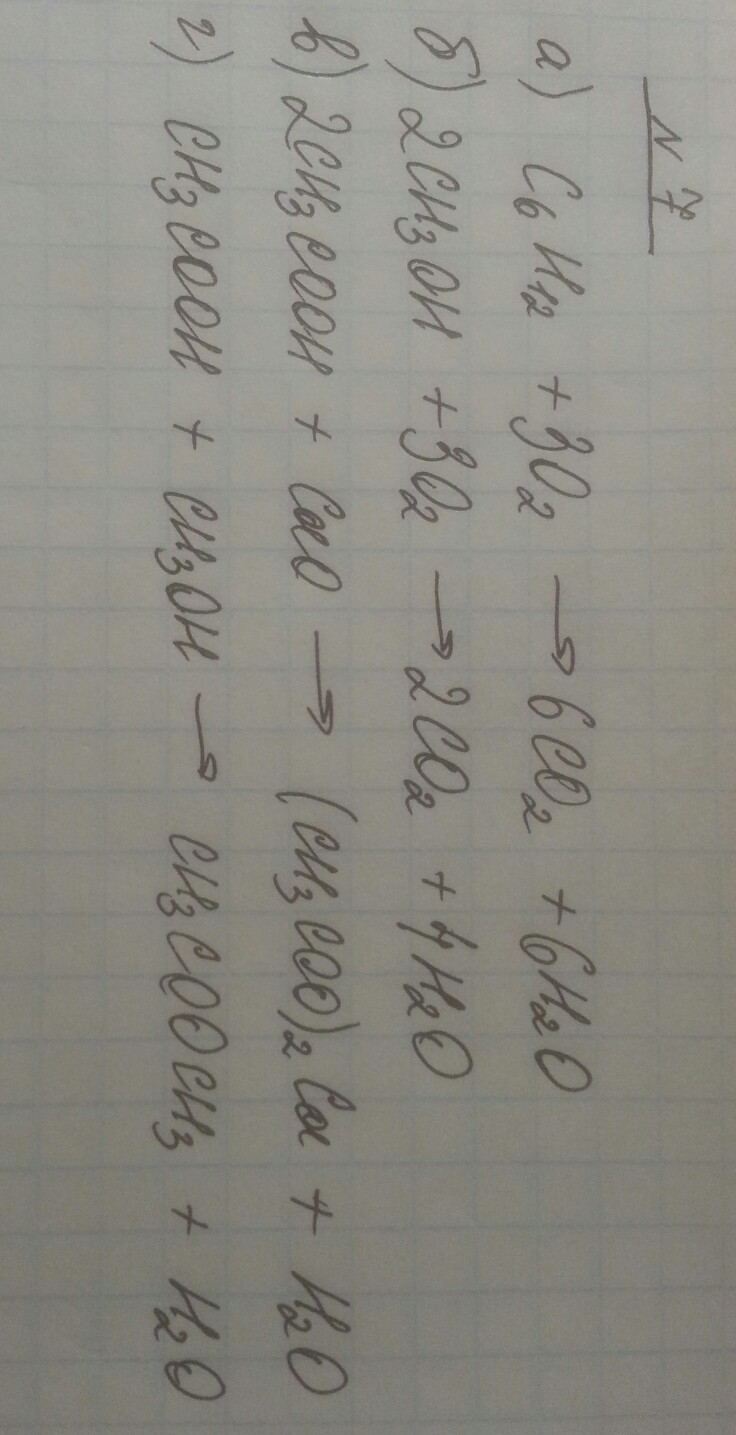 N 7
а) C₆H₁₂ + 3O₂ → 6CO₂ + 6H₂O
б) 2CH₃OH + 3O₂ → 2CO₂ + 4H₂O
в) 2CH₃COOH + CaO → (CH₃COO)₂Ca + H₂O
г) CH₃COOH + CH₃OH → CH₃COOCH₃ + H₂O